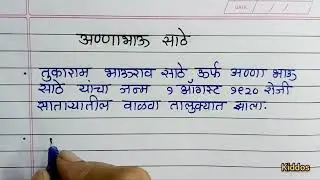 अण्णाभाऊ साठे
• तुकाराम भाऊराव साठे ऊर्फ अण्णा भाऊ
साठे यांचा जन्म १ ऑगस्ट १९२० रोजी
साताऱ्यातील वाळवा तालुक्यात झाला.
Kiddos